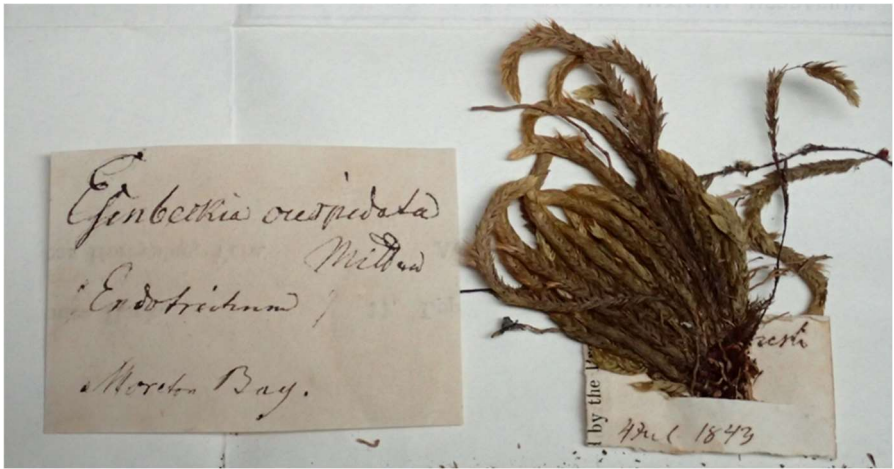 Esenbeckia cuspidata
Mitten
Endotrichum ?
Moreton Bay.
l by the
1843